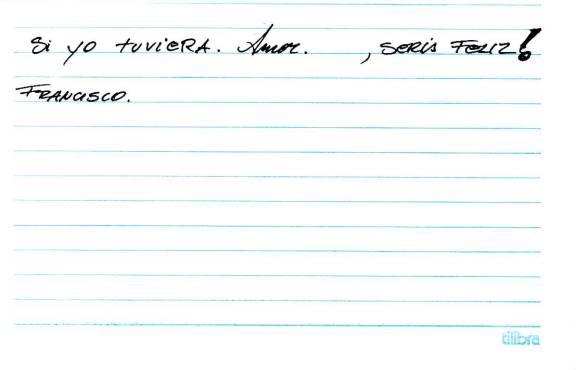 Si yo tuviera. Amor. , seris Feliz!
Francisco.
tilibra